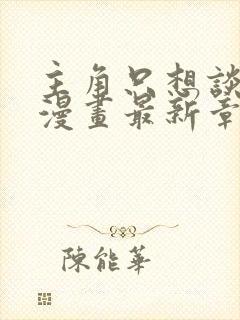 主角只想談
漫畫最新章
陳能華